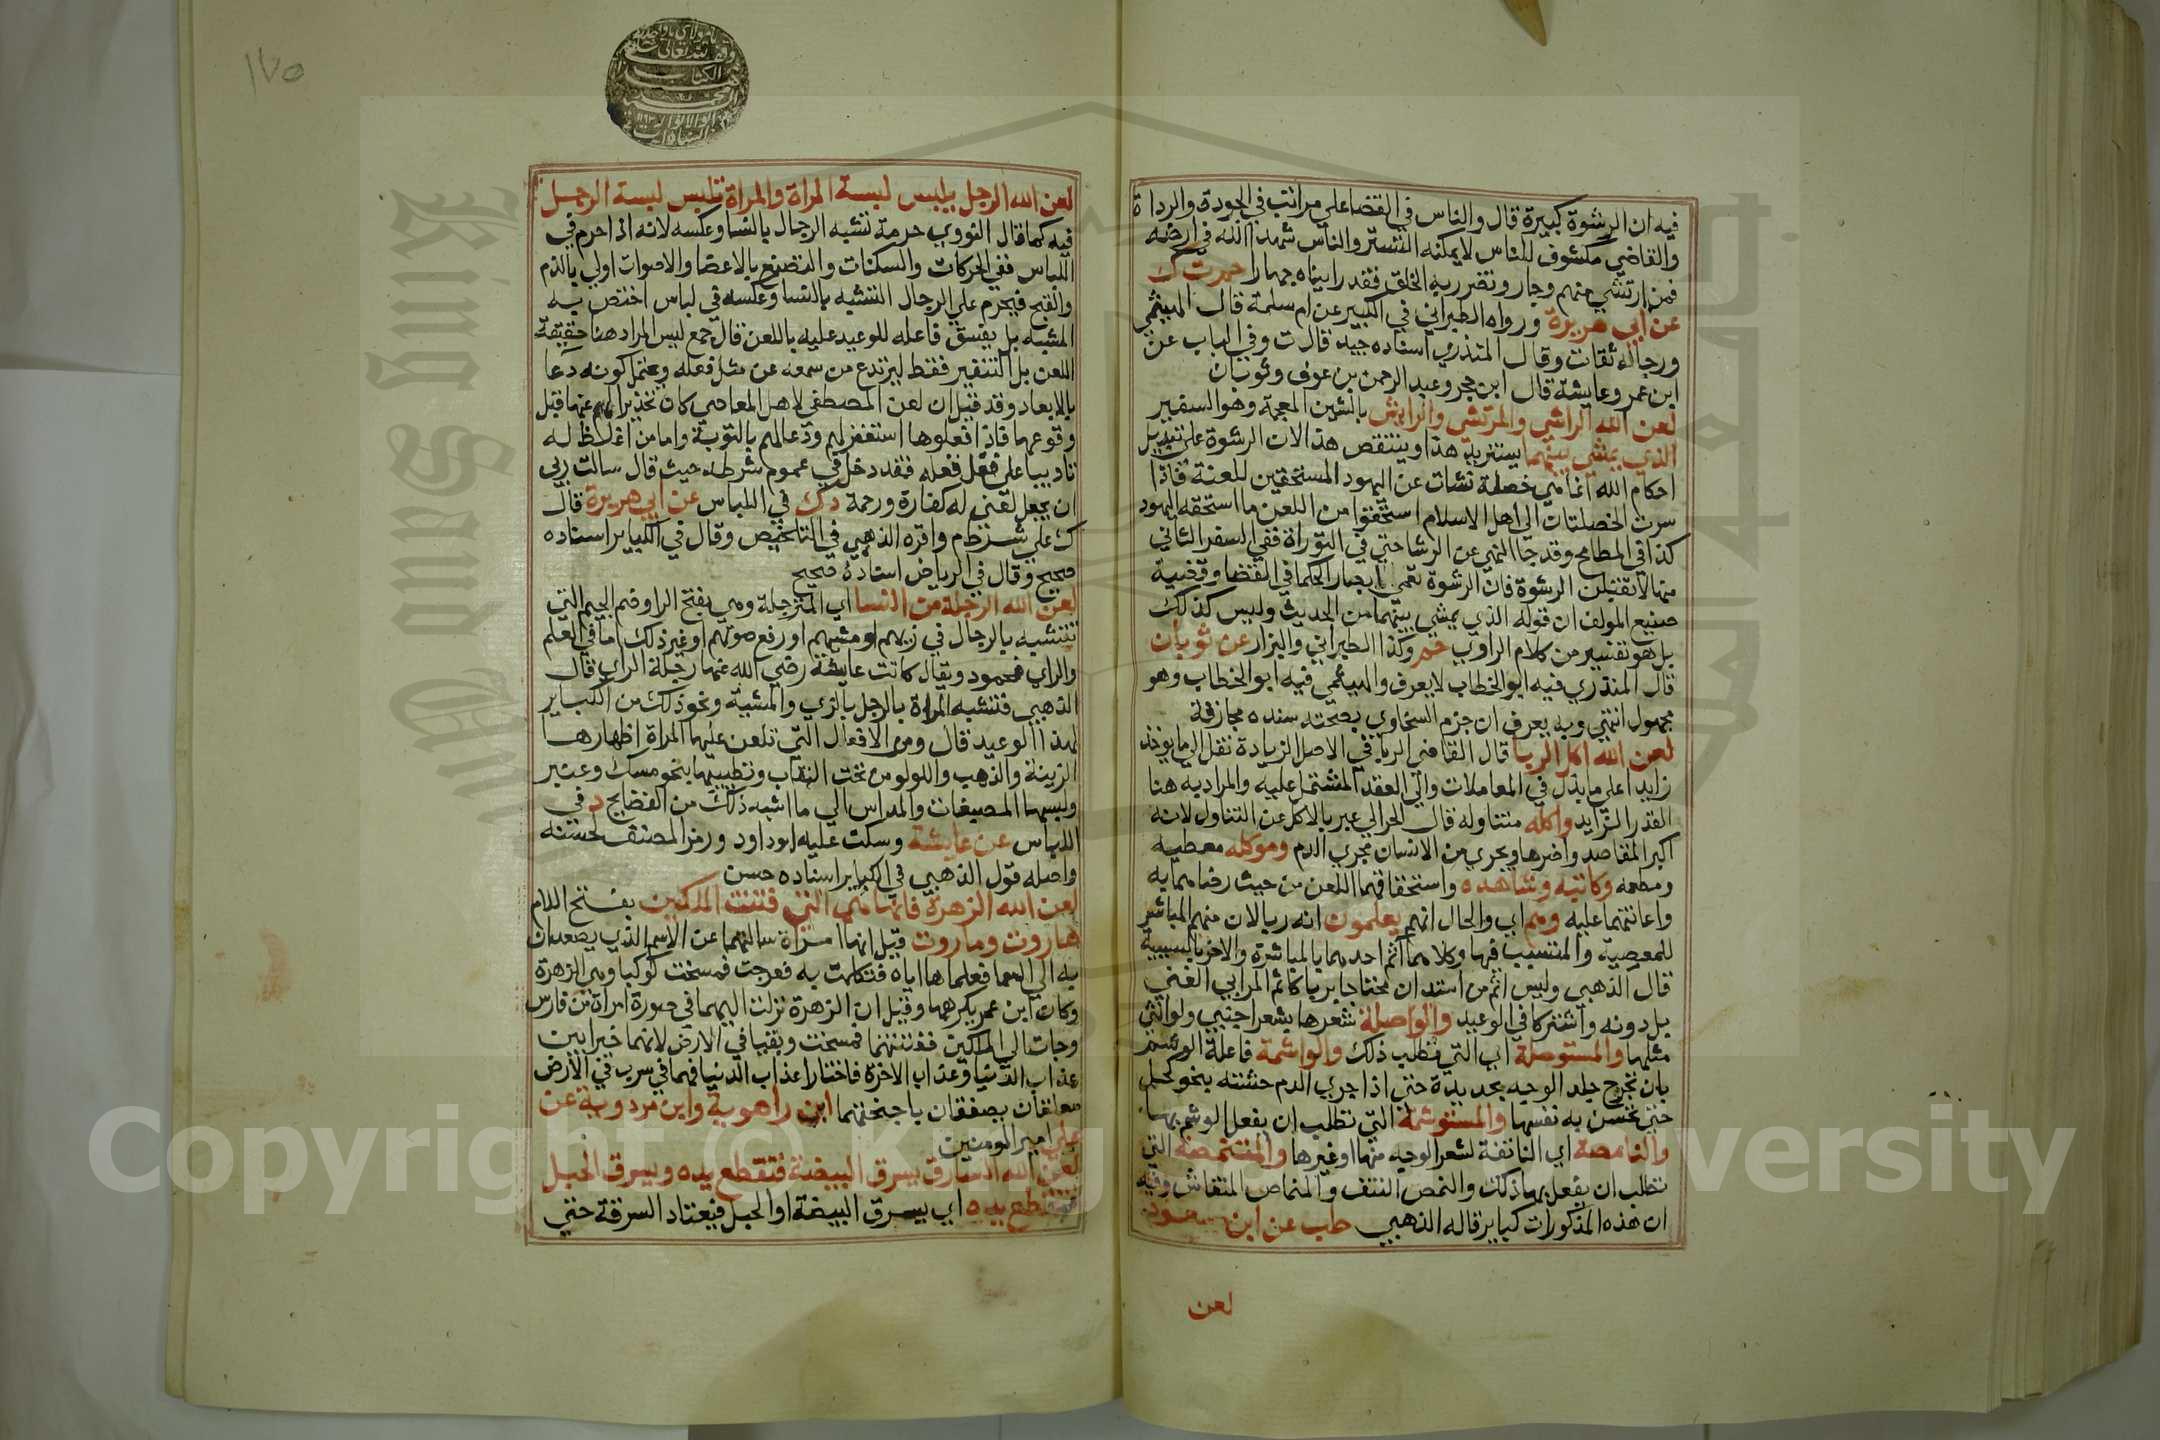 فيه ان الرشوة كبيرة قال والناس في القضا على مراتب في الجودة والرداة
والقاضي مكشوف للناس لا يمكنه التستر والناس شهدا الله في ارضه
فمن ارتشي منهم وجار وتضرر به الخلق فقد راينياه جهارا حم ت ك
عن ابي هريرة ورواه الطبراني في الكبير عن ام سلمة قال الهيثمي
ورجاله ثقات وقال المنذري اسناده جيد قال ت وفي الباب عن
ابن عمر وعايشة قال ابن حجر وعبد الرحمن بن عوف وثوبان
لعن الله الراشي والمرتشي والرايش بالشين المعجمة وهو السفير
الذي يمشي بينهما يستزيد هذا ويستنقص هذا لان الرشوة على تبديل
احكام الله انما هي خصلة نشات عن اليهود المستحقين للعنة فاذا
سرت الخصلتان الي اهل الاسلام استحقوا من اللعن ما استحقه اليهود
كذا في المطامح وقد جا النهي عن الرشا حتي في التوراة ففي السفر الثاني
منها لا تقبلن الرشوة فان الرشوة تعمي ابصار الحكام في القضا وقضية
صنيع المولف ان قوله الذي يمشي بينهما من الحديث وليس كذلك
بل هو تفسير من كلام الراوي حم وكذا الطبراني والبزار عن ثوبان
قال المنذري فيه ابو الخطاب لا يعرف والهيثمي فيه ابو الخطاب وهو
مجهول انتهي وبه يعرف ان جزم السخاوي بصحة سنده مجازفة
لعن الله اكل الربا قال القاضي الربا في الاصل الزيادة نقل الي ما يوخذ
زايدا علي ما بذل في المعاملات والي العقد المشتمل عليه والمراد به هنا
القدر الزايد واكله متناوله قال الحرالي عبر بالاكل عن التناول لانه
اكبر المقاصد واضرها ويجري من الانسان مجري الدم وموكله معطيه
ومطعمه وكاتبه وشاهده واستحقاقهما اللعن من حيث رضاهما به
واعانتهما عليه وهم اي والحال انهم يعلمون انه ربا لان منهم المباشر
للمعصية والمتسبب فيها وكلاهما اثم احدهما بالمباشرة والاخر بالسببية
قال الذهبي وليس اثم من استدان محتاجا بربا كاثم المرابي الغني
بل دونه واشتركا في الوعيد والواصلة شعرها بشعر اجنبي ولو انثي
مثلها والمستوصلة اي التي تطلب ذلك والواشمة فاعلة الوشم
بان تجرح جلد الوجه بحديدة حتي اذا جري الدم حشته بنحو كحل
حتي تحسن به نفسها والمستوشمة التي تطلب ان يفعل الوشم بها
والنامصة اي الناتفة لشعر الوجه منها او غيرها والمتنمصة التي
تطلب ان يفعل بها ذلك والنمص النتف والمنماص المنقاش وفيه
ان هذه المذكورات كباير قاله الذهبي طب عن ابن مسعود
لعن
١٧٥
لعن الله الرجل يلبس لبسة المراة والمراة تلبس لبسة الرجل
فيه كما قال النووي حرمة تشبه الرجال بالنسا وعكسه لانه اذا حرم في
اللباس ففي الحركات والسكنات والتصنع بالاعضا والاصوات اولي بالذم
والقبح فيحرم علي الرجال التشبه بالنسا وعكسه في لباس اختص به
المشبه بل يفسق فاعله للوعيد عليه باللعن قال جمع ليس المراد هنا حقيقة
اللعن بل التنفير فقط ليرتدع من سمعه عن مثل فعله ويحتمل كونه دعا
بالابعاد وقد قيل ان لعن المصطفي لاهل المعاصي كان تحذيرا لهم عنها قبل
وقوعها فاذا فعلوها استغفر لهم ودعا لهم بالتوبة واما من اغلظ له
تاديبا علي فعل فعله فقد دخل في عموم شرطه حيث قال سالت ربي
ان يجعل لعني له كفارة ورحمة د ك في اللباس عن ابي هريرة قال
ك علي شرط م واقره الذهبي في التلخيص وقال في الكباير اسناده
صحيح وقال في الرياض اسناده صحيح
لعن الله الرجلة من النسا اي المترجلة وهي بفتح الرا وضم الجيم التي
تتشبه بالرجال في زيهم او مشيهم او رفع صوتهم او غير ذلك اما في العلم
والراي فمحمود ويقال كانت عايشة رضي الله عنها رجلة الراي قال
الذهبي فتشبه المراة بالرجل بالزي والمشية ونحو ذلك من الكباير
لهذا الوعيد قال ومن الافعال التي تلعن عليها المراة اظهارها
الزينة والذهب واللولو من تحت النقاب وتطيبها بنحو مسك وعنبر
ولبسها المصبغات والمداس الي ما اشبه ذلك من الفضايح د في
اللباس عن عايشة وسكت عليه ابو داود ورمز المصنف لحسنه
واصله قول الذهبي في الكباير اسناده حسن
لعن الله الزهرة فانها هي التي فتنت الملكين بفتح اللام
هاروت وماروت قيل انها امراة سالتهما عن الاسم الذي يصعدان
به الي السما فعلماها اياه فتكلمت به فعرجت فمسخت كوكبا وهي الزهرة
وكان ابن عمر يكرهها وقيل ان الزهرة نزلت اليهما في صورة امراة من فارس
وجات الي الملكين ففتنتهما فمسخت وبقيا في الارض لانهما خيرا بين
عذاب الدنيا وعذاب الاخرة فاختارا عذاب الدنيا فهما في سرب في الارض
معلقان يصفقان باجنحتهما ابن راهوية وابن مردوية عن
علي امير المومنين
لعن الله السارق يسرق البيضة فتقطع يده ويسرق الحبل
فتقطع يده اي يسرق البيضة او الحبل فيعتاد السرقة حتي
Copyright © King Saud University
King Saud University